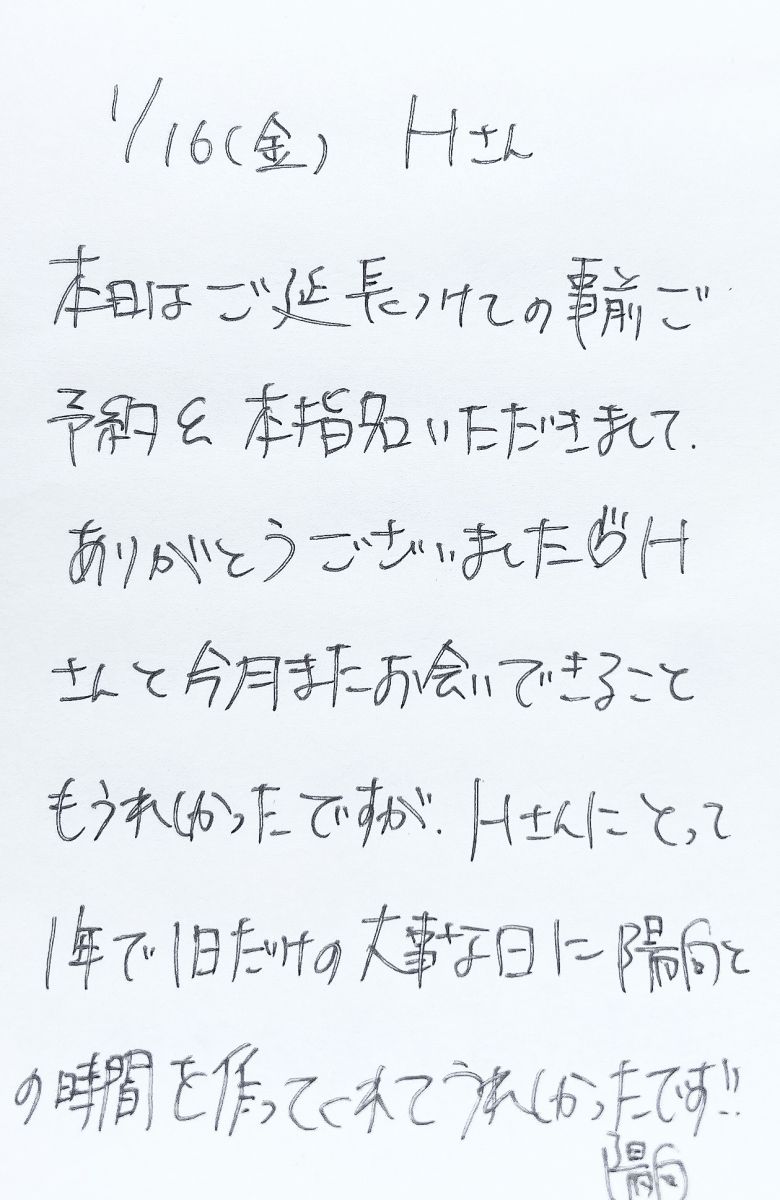 1/16(金) Hさん
本日はご延長つけての事前ご
予約と本指名いただきまして、
ありがとうございました♡H
さんと今月またお会いできること
もうれしかったですが、Hさんにとって
1年で1日だけの大事な日に陽向と
の時間を作ってくれてうれしかったです!!
陽向